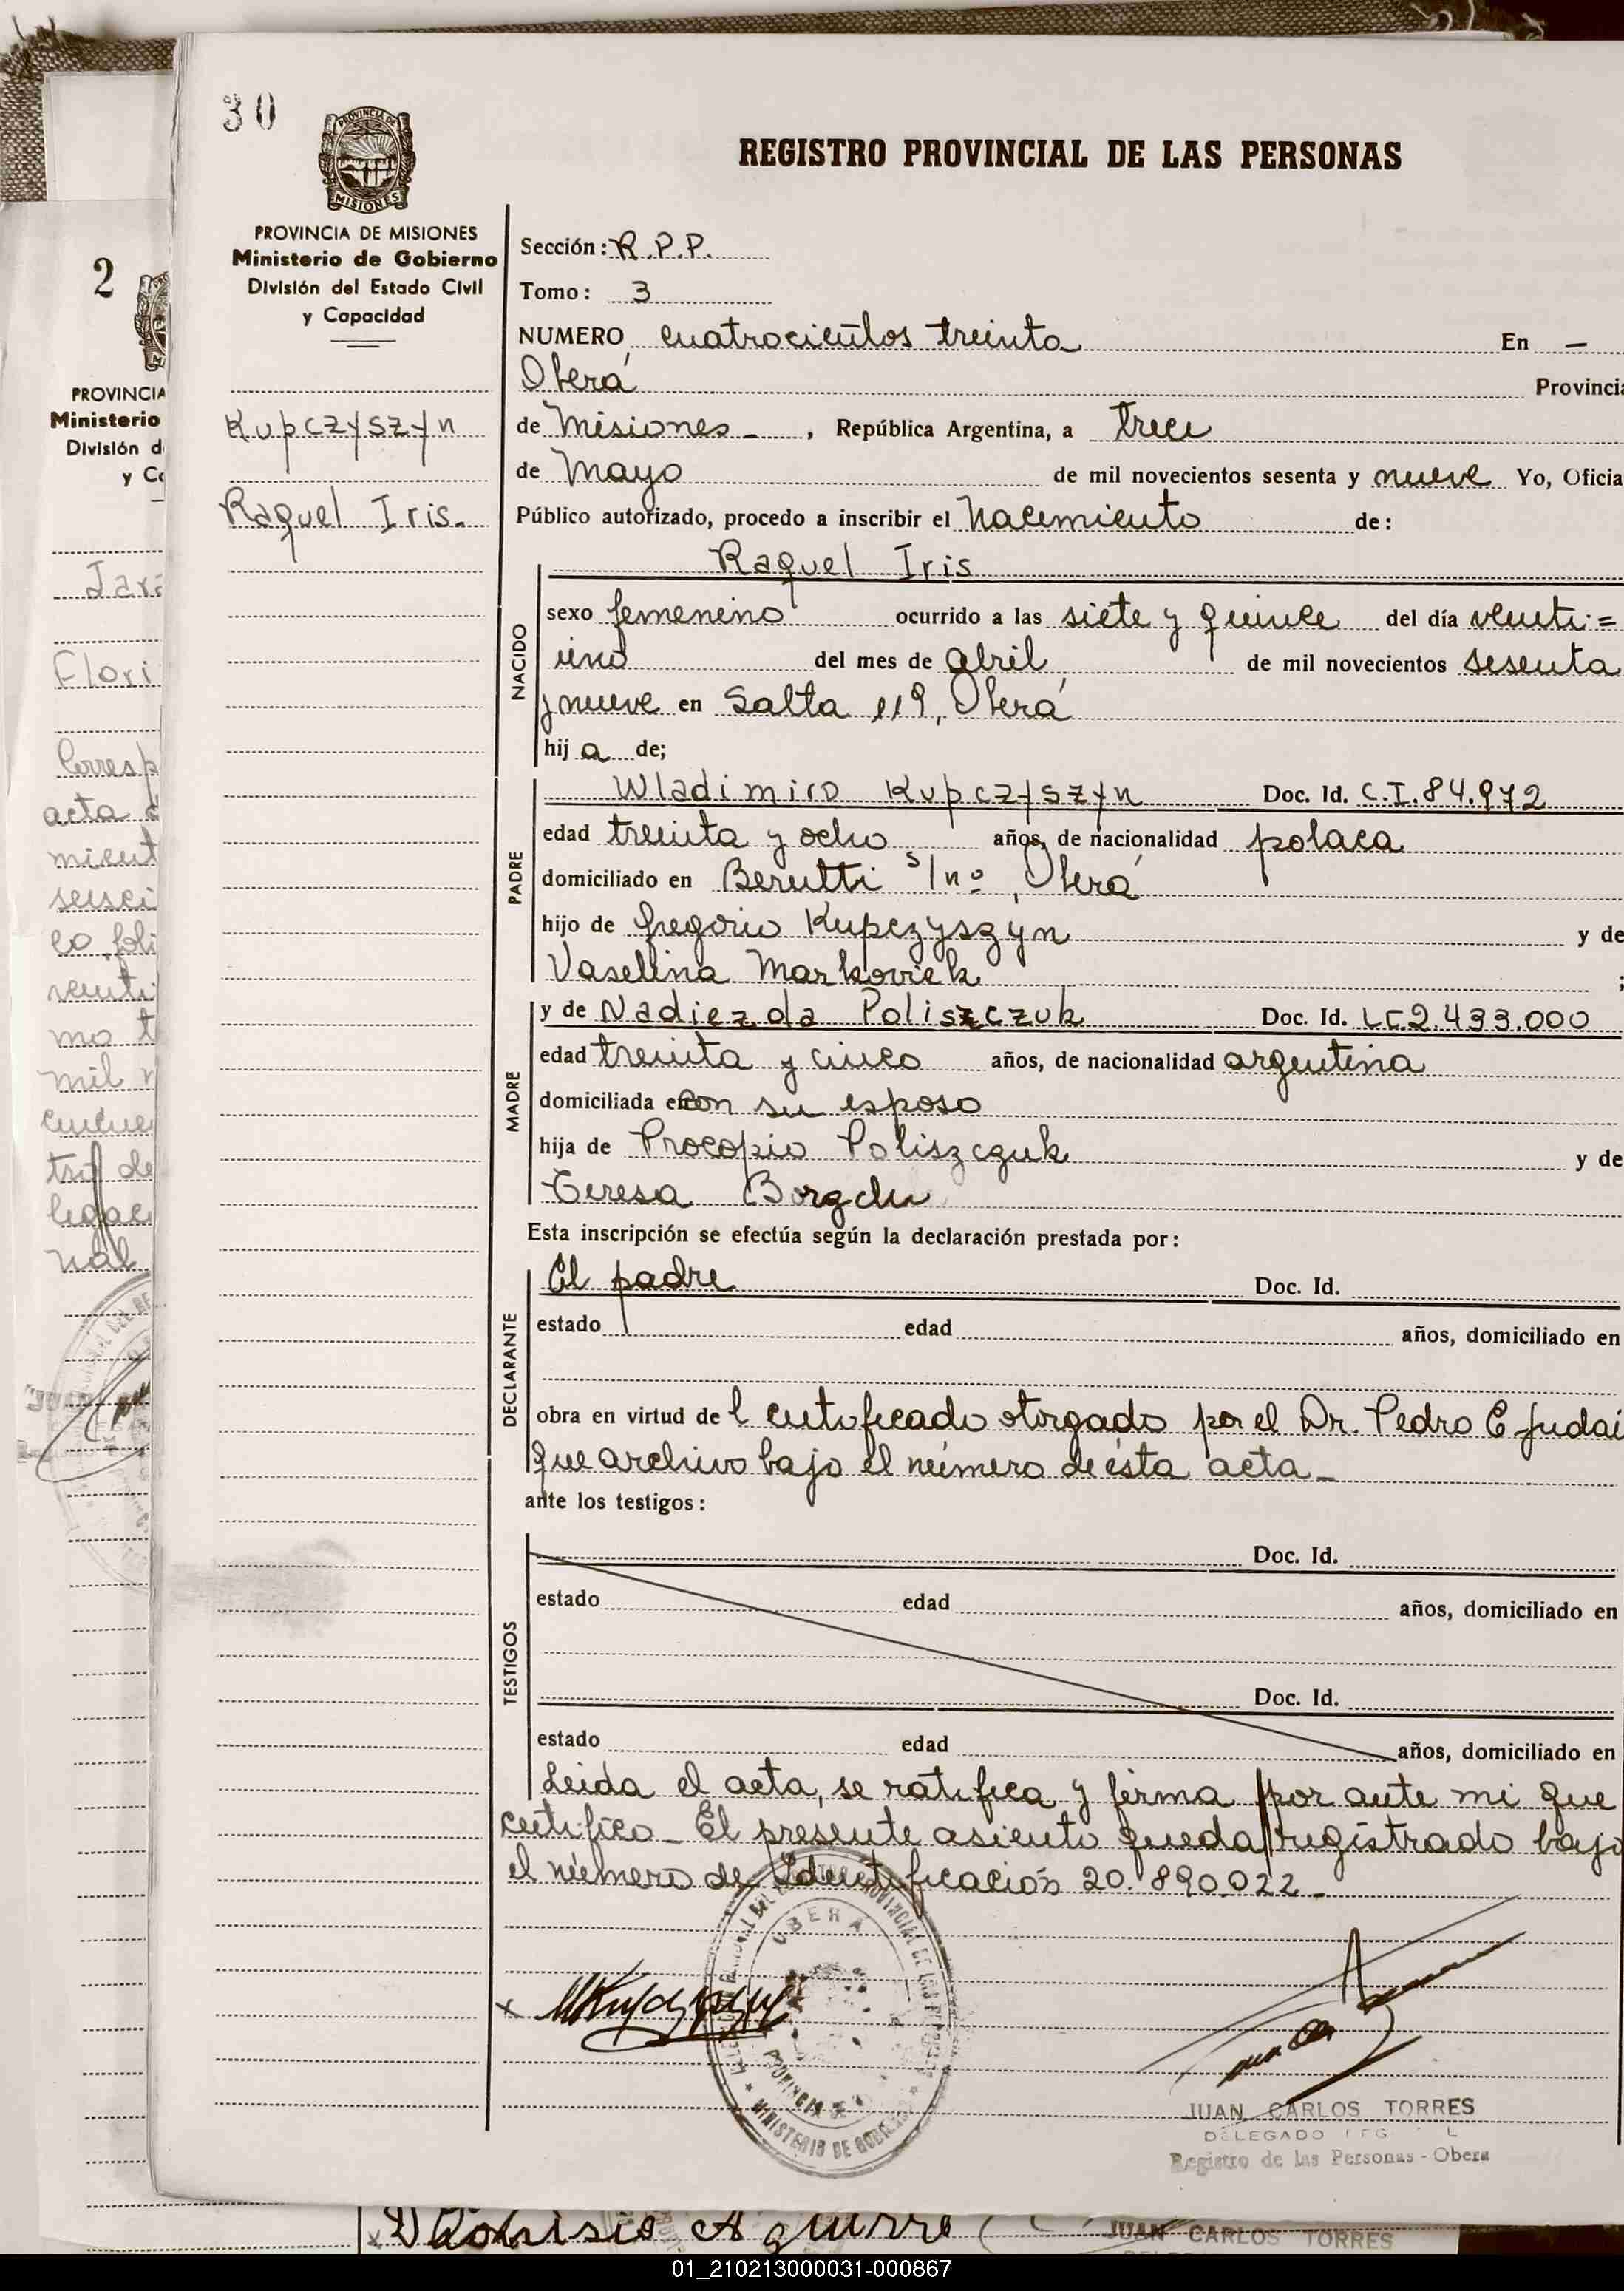 30
PROVINCIA DE
MISIONES
REGISTRO PROVINCIAL DE LAS PERSONAS
PROVINCIA DE MISIONES
Ministerio de Gobierno
División del Estado Civil
y Capacidad
Kupczyszyn
Raquel Iris.
Sección: R.P.P.
Tomo: 3
NUMERO cuatrocientos treinta En -
Oberá Provincia
de Misiones - , República Argentina, a trece
de Mayo de mil novecientos sesenta y nueve Yo, Oficia
Público autorizado, procedo a inscribir el Nacimiento de:
NACIDO
Raquel Iris
sexo femenino ocurrido a las siete y quince del día veinti=
uno del mes de abril de mil novecientos sesenta
y nueve en Salta 119, Oberá
hij a de;
PADRE
Wladimiro Kupczyszyn Doc. Id. C.I. 84.972
edad treinta y ocho años, de nacionalidad polaca
domiciliado en Berutti s/nº, Oberá
hijo de Gregorio Kupczyszyn y de
Vaselina Markoviek ;
MADRE
y de Nadiezda Poliszczuk Doc. Id. LC 2.433.000
edad treinta y cinco años, de nacionalidad argentina
domiciliada en con su esposo
hija de Procopio Poliszczuk y de
Teresa
Esta inscripción se efectúa según la declaración prestada por:
DECLARANTE
El padre Doc. Id.
estado edad años, domiciliado en
obra en virtud de l certificado otorgado por el Dr. Pedro E Judai
que archivo bajo el número de ésta acta -
ante los testigos:
TESTIGOS
Doc. Id.
estado edad años, domiciliado en
Doc. Id.
estado edad años, domiciliado en
Leida el acta, se ratifica y firma por ante mi que
certifico - El presente asiento queda registrado bajo
el número de Identificación 20.890.022 -
x
OBERÁ
PROVINCIA DE
MINISTERIO DE GOBIERNO
JUAN CARLOS TORRES
DELEGADO
Registro de las Personas - Obera
2
PROVINCIA
Ministerio
División d
y Ca
Jara
Flori
Corresp
acta d
mient
seisci
co, foli
veinti
mo t
mil n
cuncue
tro de
legac
nal
x Dionisio Aguirre
JUAN CARLOS TORRES
01_210213000031-000867